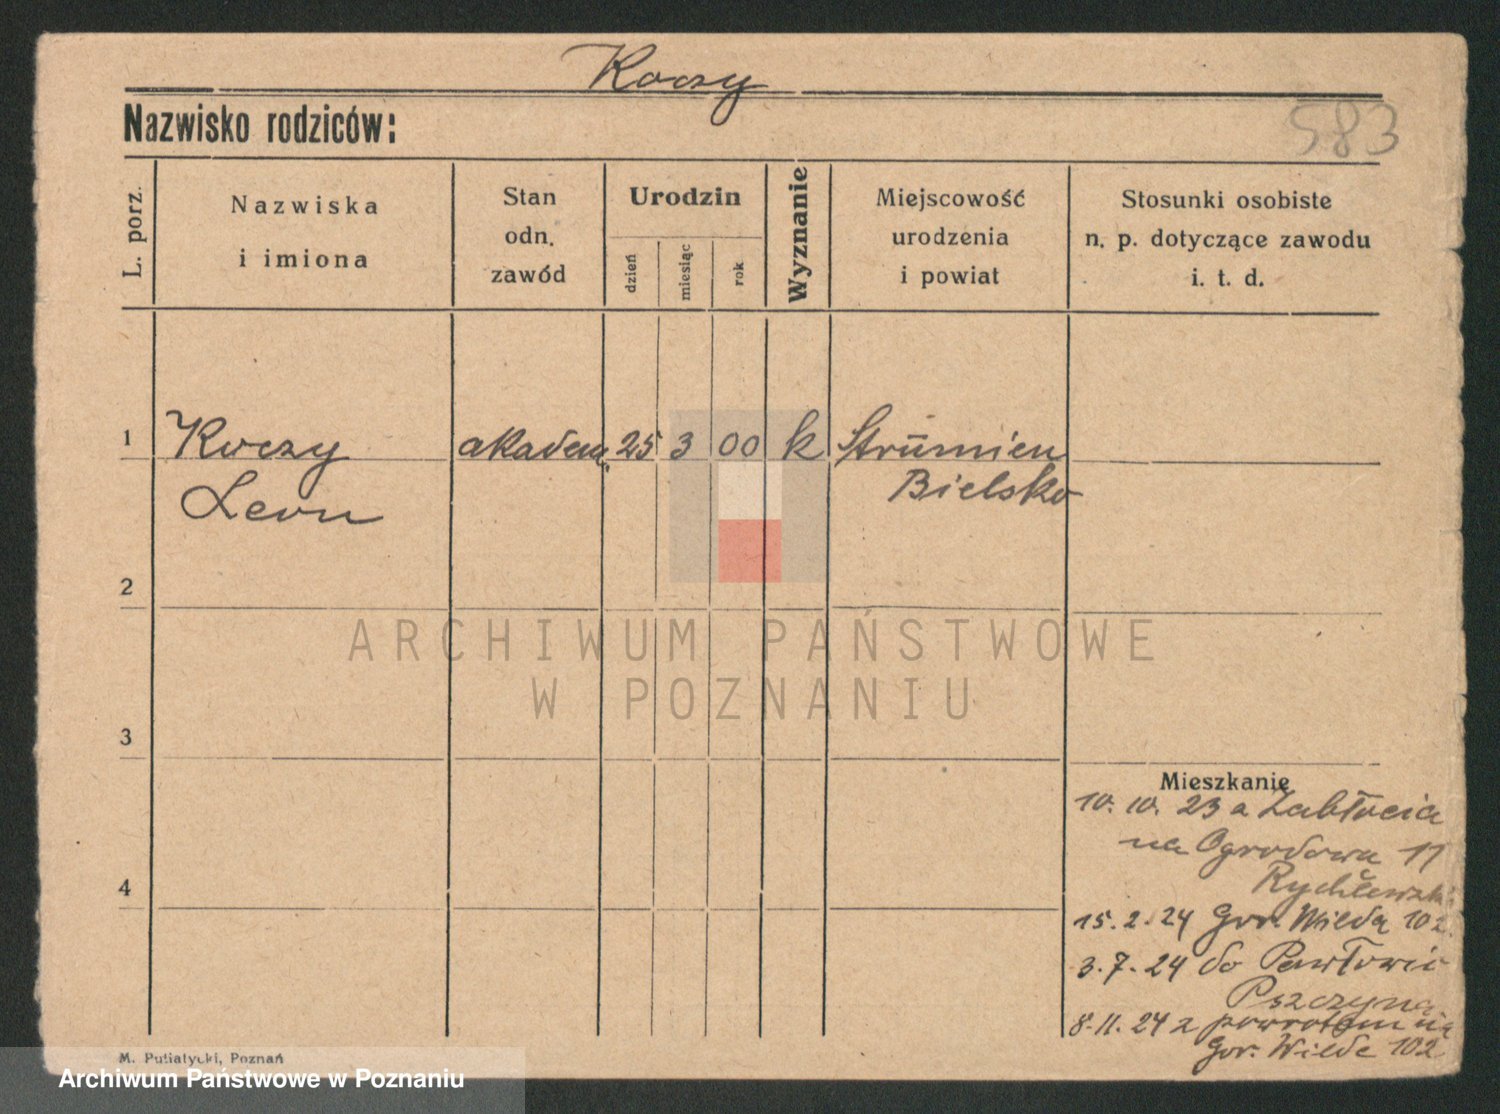 Koczy
Nazwisko rodziców:
583
L. porz.
Nazwiska
i imiona
Stan
odn.
zawód
Urodzin
dzień
miesiąc
rok
Wyznanie
Miejscowość
urodzenia
i powiat
Stosunki osobiste
n. p. dotyczące zawodu
i. t. d.
1 Koczy akadem. 25 3 00 k Strumien
Leon Bielsko
2
ARCHIWUM PAŃSTWOWE
W POZNANIU
3
Mieszkanie
10. 10. 23 a Zabłocia
na Ogrodowa 11
Rychlewski
4
15. 2. 24 Gor. Wilda 102.
3. 7. 24 do Pawłowic
Pszczyna
8. 11. 24 z powrotem na
Gor. Wilde 102
M. Putiatycki, Poznań
Archiwum Państwowe w Poznaniu